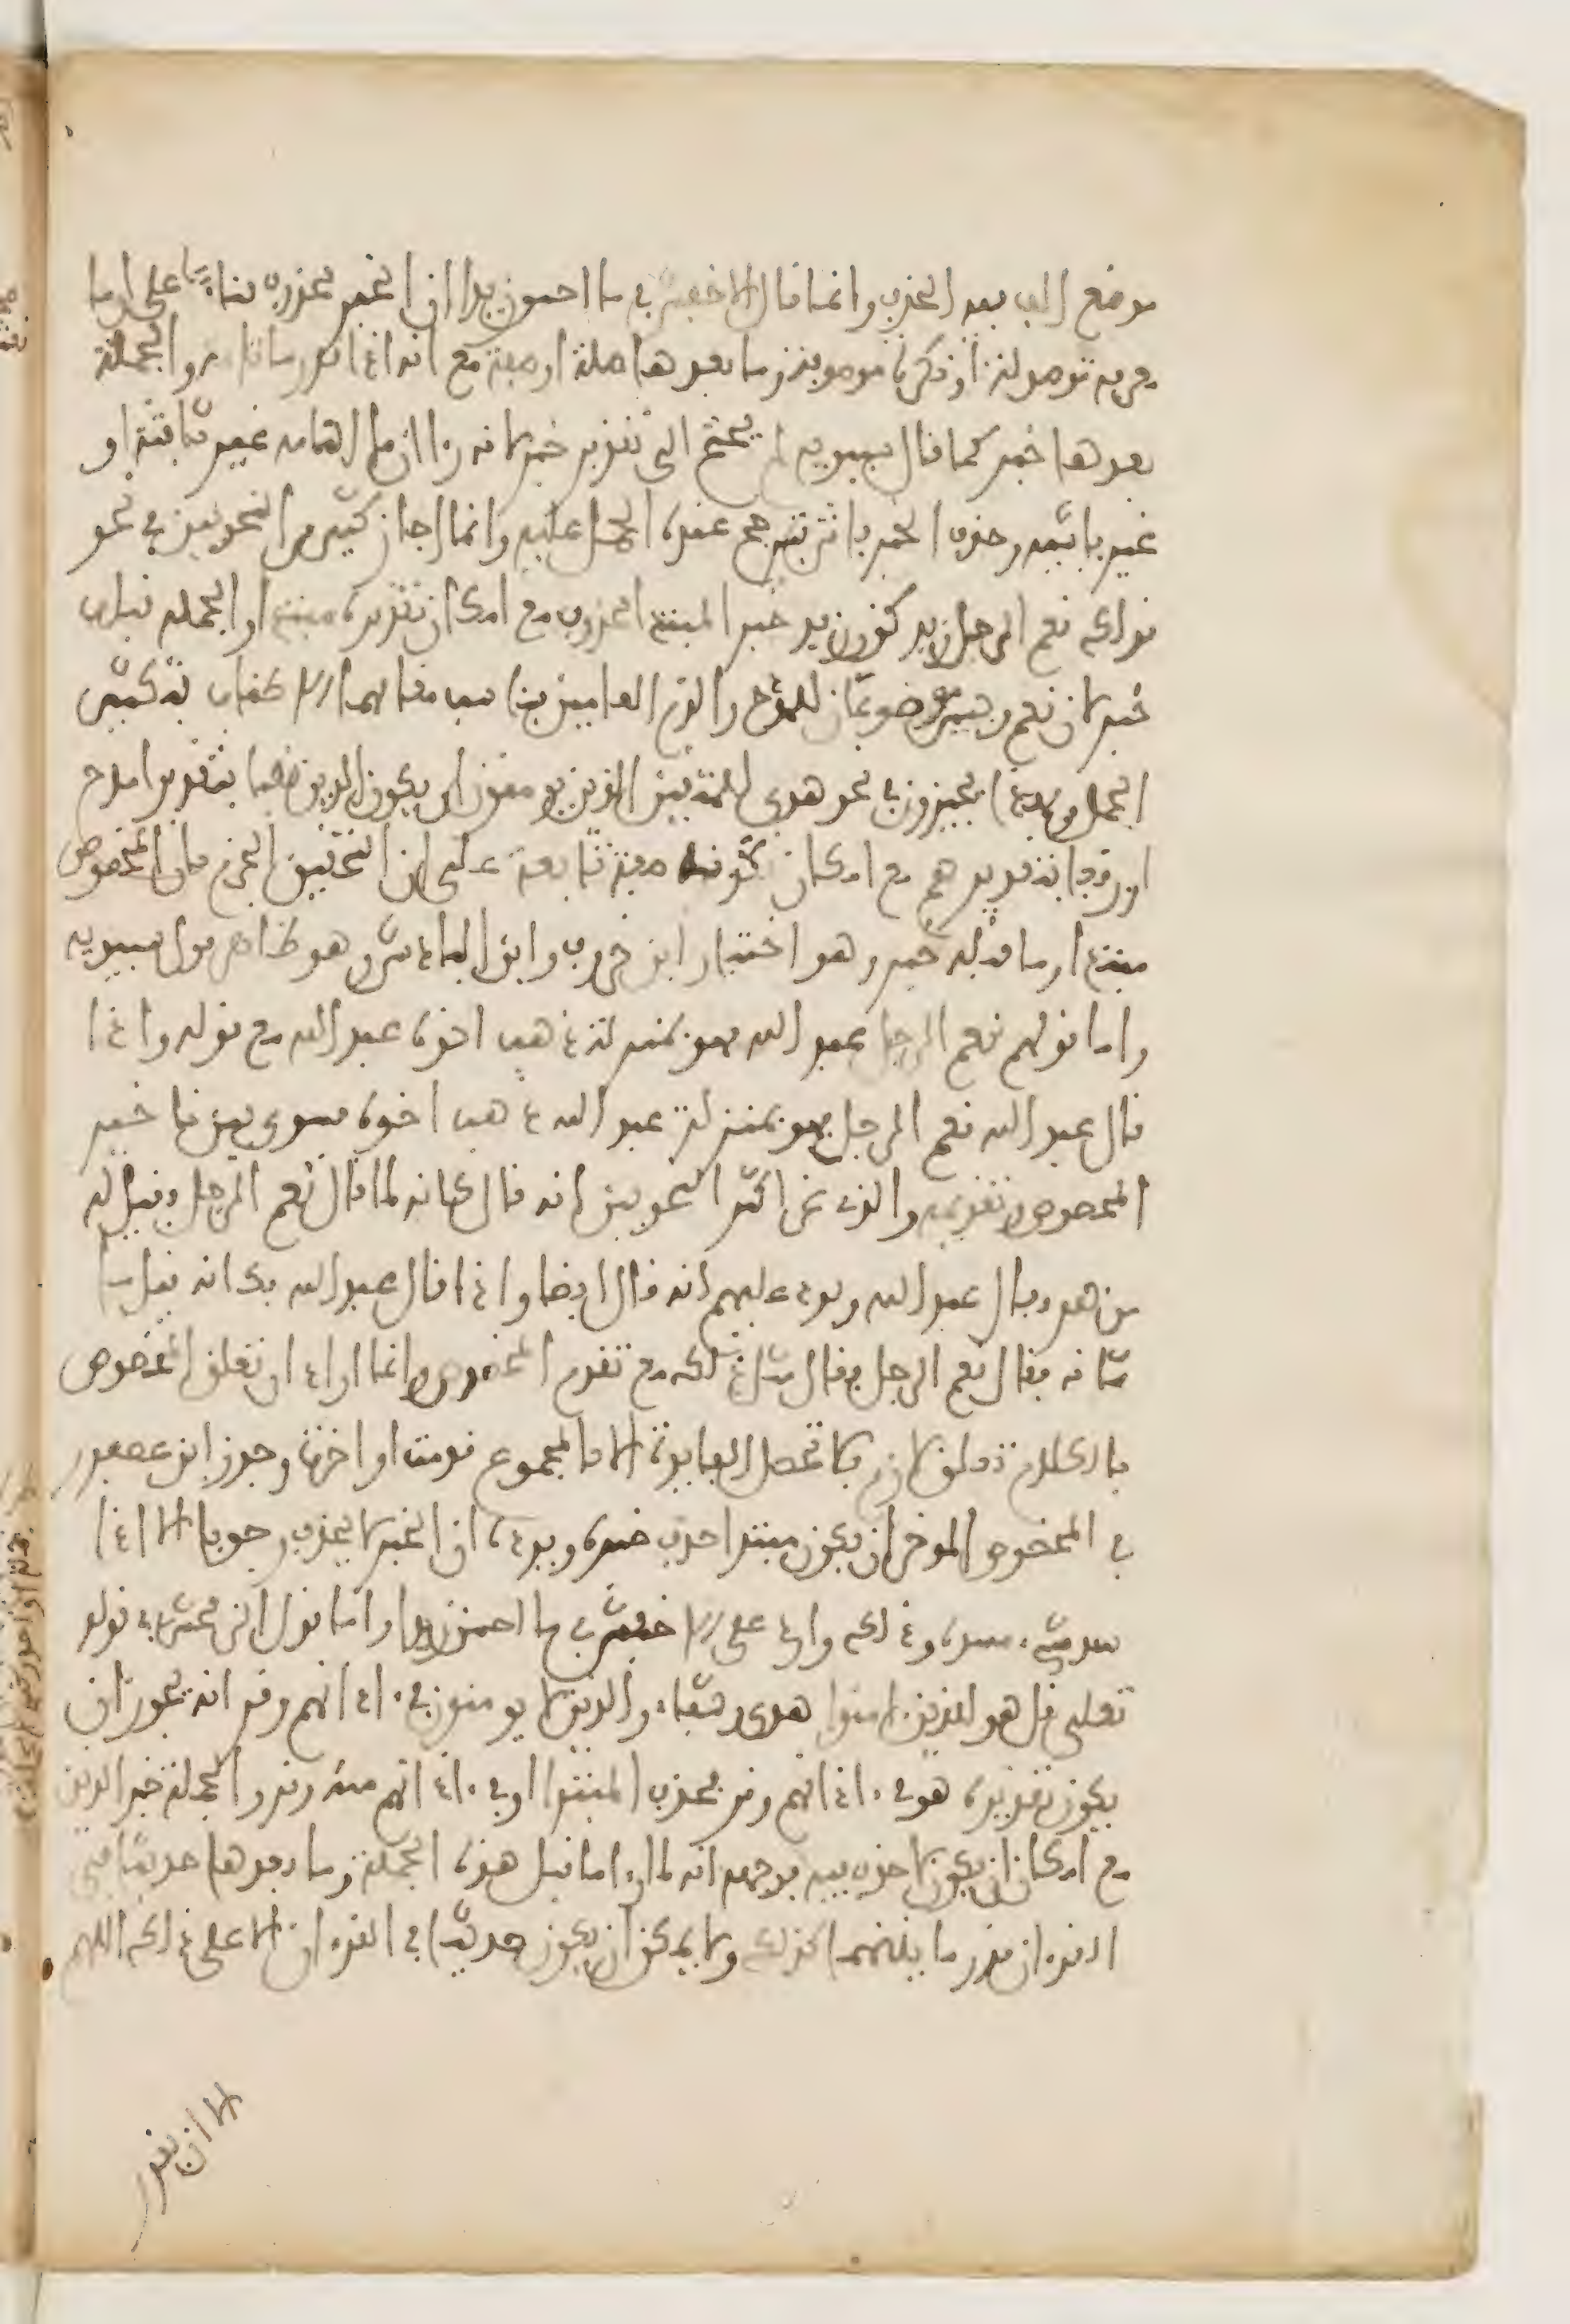 موضع الف بعد الحذف وانما قال الاخفش في ما احسن زيدا ان الخبر محذوف بناء على ان ما
معرفة موصولة او نكرة موصوفة وما بعدها صلة او صفة مع انه اذا قدر ما نكرة تامة والجملة
بعدها خبر كما قال سيبويه لم يحتج الى تقدير خبر لانه راى ان ما التامة غير ثابتة او
غير فاشية وحذف الخبر فاش فترجح عنده الحمل عليه وانما اجاز كثير من النحويين في نحو
قولك نعم الرجل زيد كون زيد خبر المبتدا محذوف مع امكان تقديره مبتدا والجملة قبله
خبر لان نعم وبيس موضوعان للمدح والذم العامين فناسب مقامهما الاطناب بتكثير
الجمل ولهذا يجيزون في نحو هدى للمتقين الذين يومنون ان يكون الذين نصبا بتقدير امدح
او رفعا بتقدير هم مع امكان كونه صفة تابعة على ان التحقيق الجزم بان المخصوص
مبتدا وما قبله خبر وهو اختيار ابن خروف وابن الباذش وهو ظاهر قول سيبويه
واما قولهم نعم الرجل عبد الله فهو بمنزلة ذهب اخوه عبد الله مع قوله واذا
قال عبد الله نعم الرجل فهو بمنزلة عبد الله ذهب اخوه فسوى بين تاخير
المخصوص وتقديمه والذي غر اكثر النحويين انه قال كانه لما قال نعم الرجل قيل له
من هو فقال عبد الله ويرد عليهم انه قال ايضا واذا قال عبد الله فكانه قيل ما
شانه فقال نعم الرجل فقال مثل ذلك مع تقدم المخصوص وانما اراد ان تعلق المخصوص
بالكلام تعلق لازم فلا تحصل الفايدة الا بالمجموع قدمت او اخرت وجوز ابن عصفور
في المخصوص الموخر ان يكون مبتدا حذف خبره ويرده ان الخبر لا يحذف وجوبا الا اذا
سد شيء مسده وذلك وارد على الاخفش في ما احسن زيدا واما قول الزمخشري في قوله
تعلى قل هو للذين امنوا هدى وشفاء والذين لا يومنون في ءاذانهم وقر انه يجوز ان
يكون تقديره هو في ءاذانهم وقر فحذف المبتدا او في ءاذانهم منه وقر والجملة خبر الذين
مع امكان ان يكون لا حذف فيه فوجهه انه لما راى ما قبل هذه الجملة وما بعدها حديثا في
القرءان قدر ما بينهما كذلك ولا يمكن ان يكون حديثا في القرءان الا على ذلك اللهم
الا ان يقدر